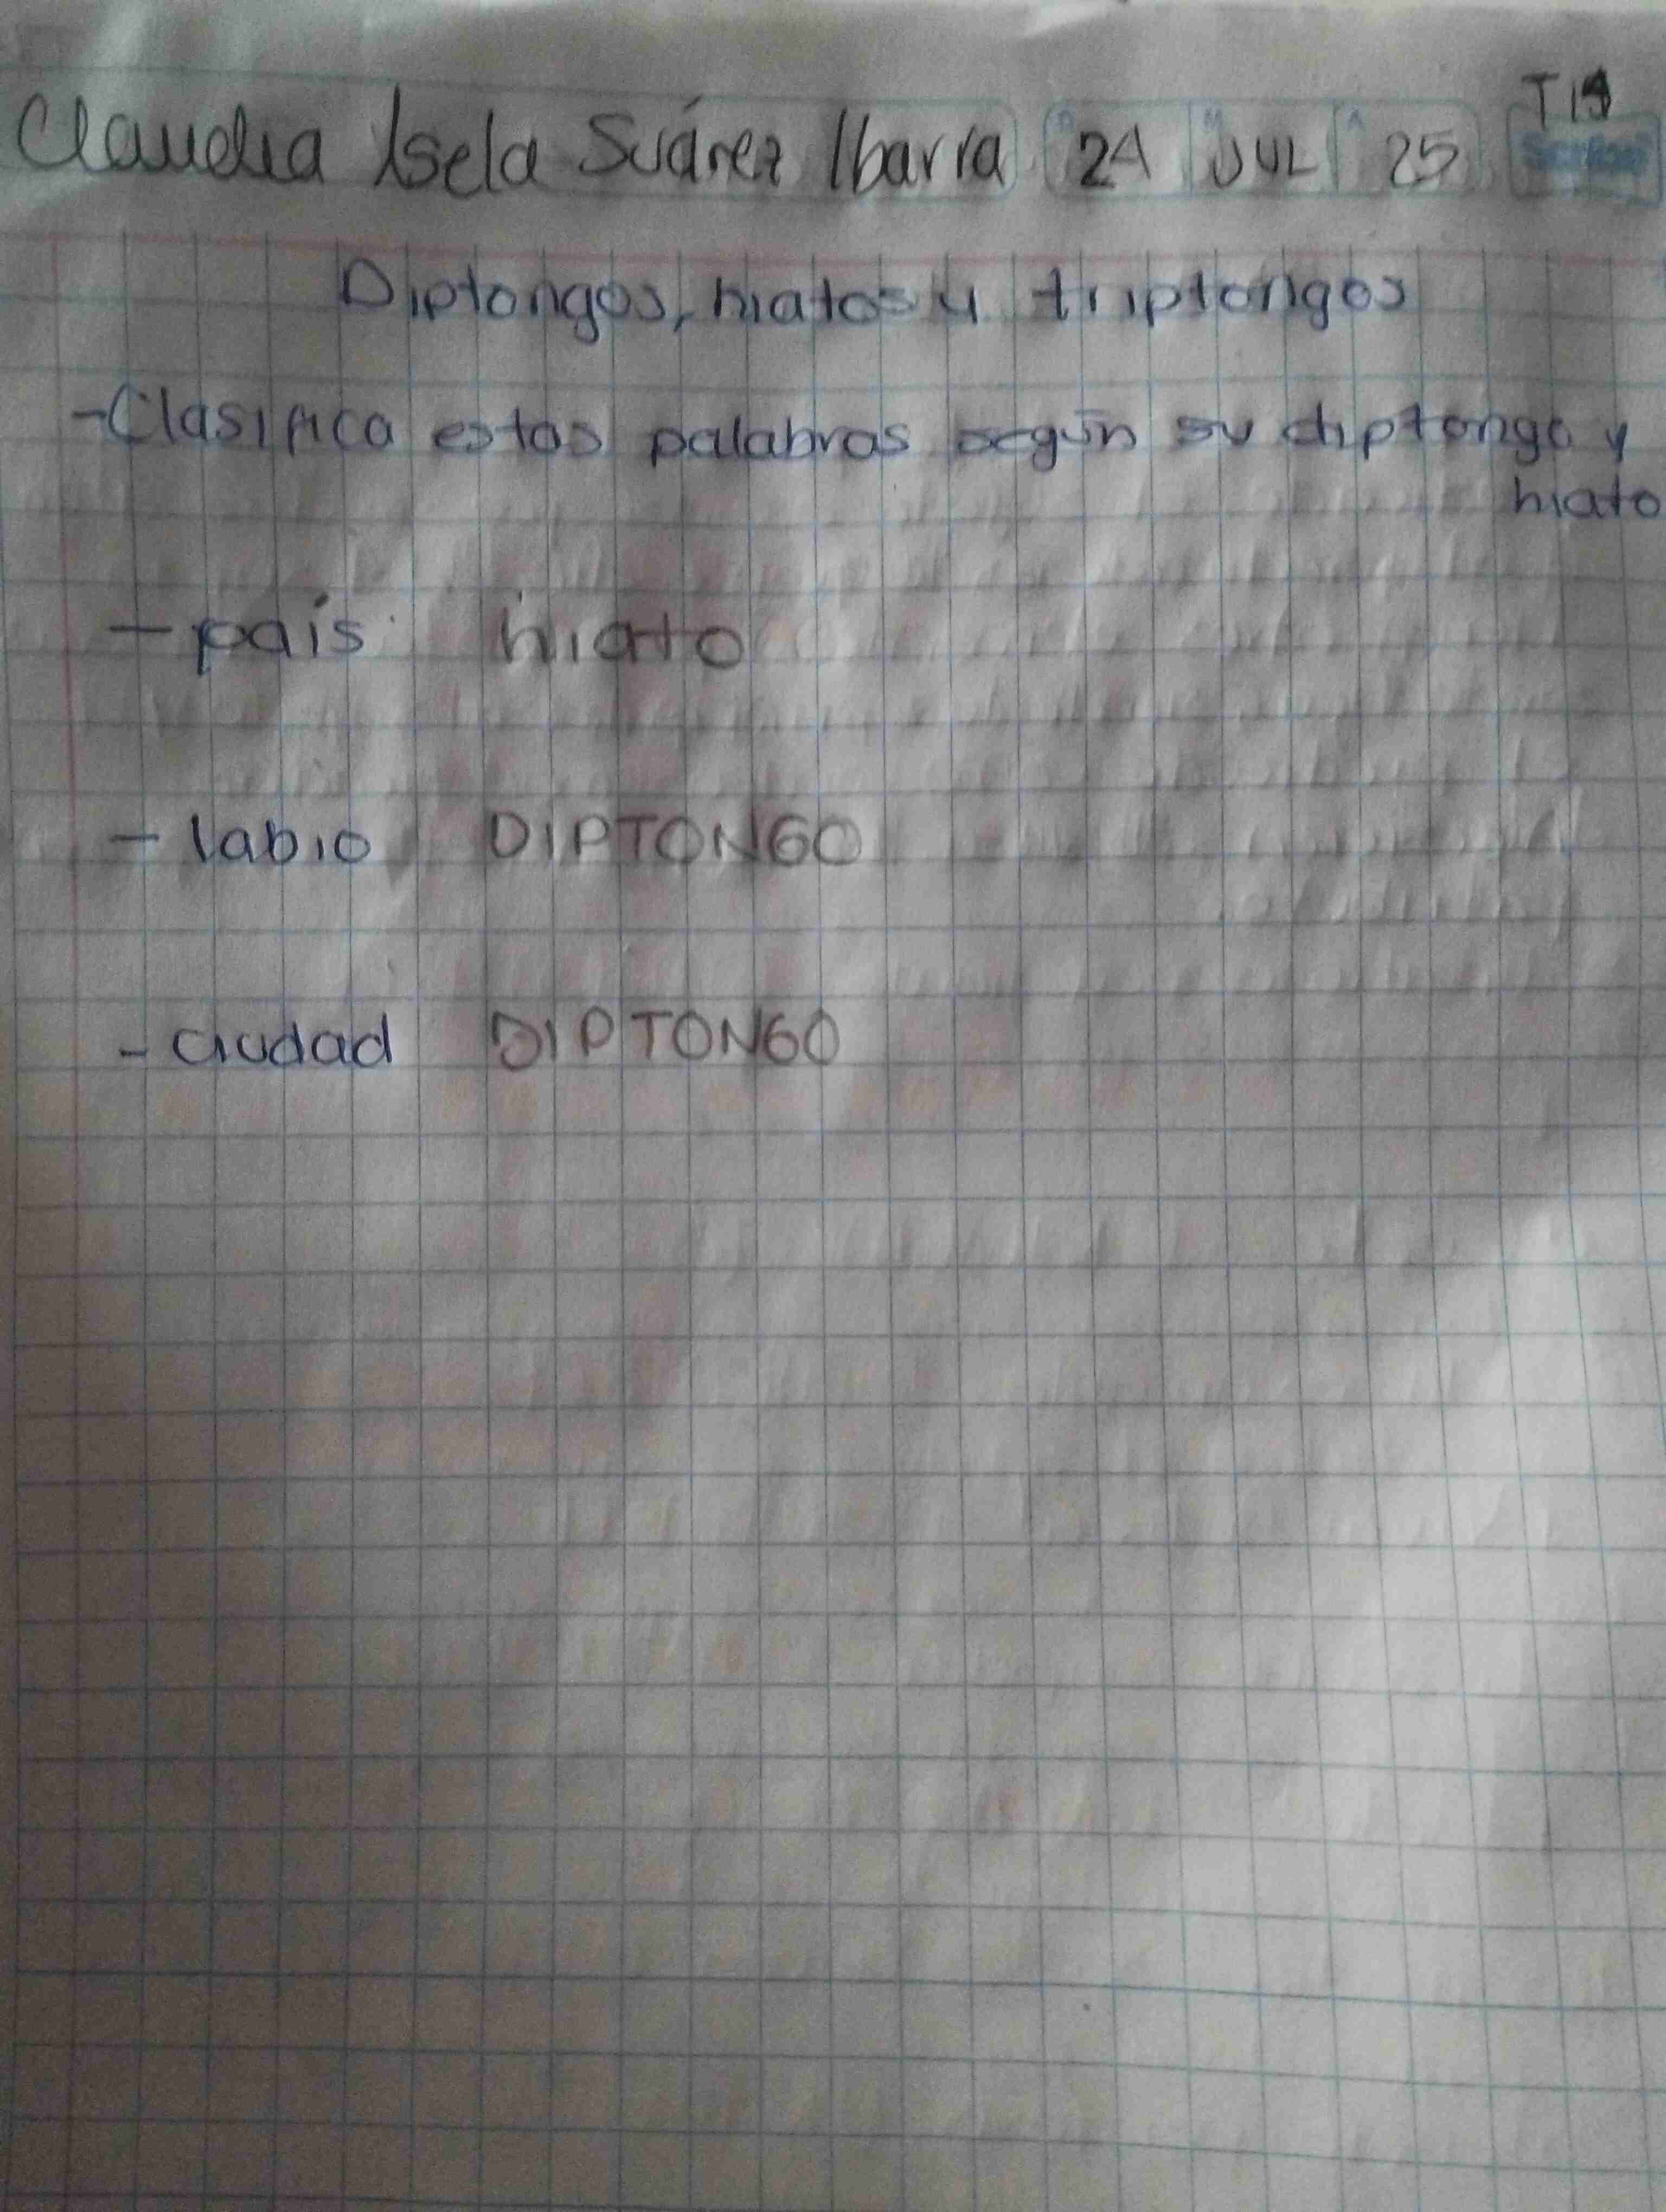 T19
Claudia Isela Suárez Ibarra 24 JUL 25
Diptongos, hiatos y triptongos
-Clasifica estas palabras según su diptongo y
hiato
- país hiato
- labio DIPTONGO
- ciudad DIPTONGO